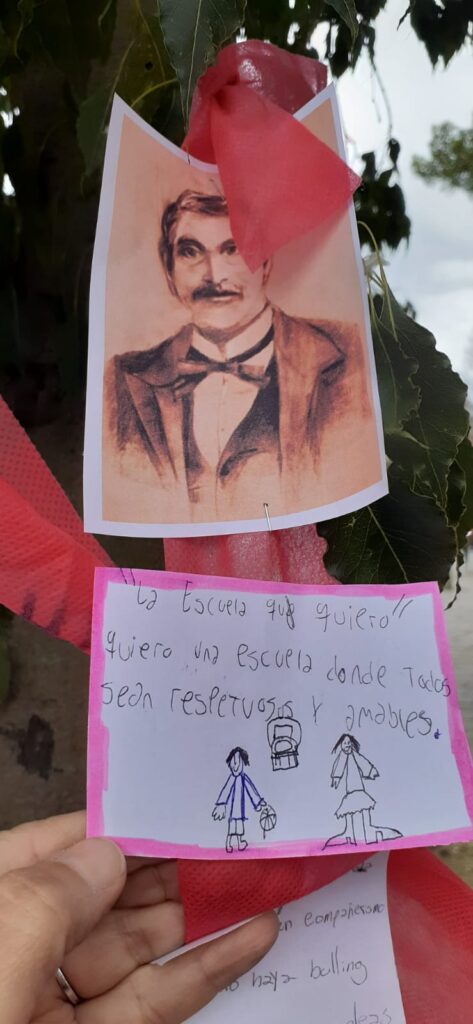 "La Escuela que quiero"
quiero una escuela donde Todos
sean respetuosos Y amables.
en compañerismo
no haya bulling
ideas